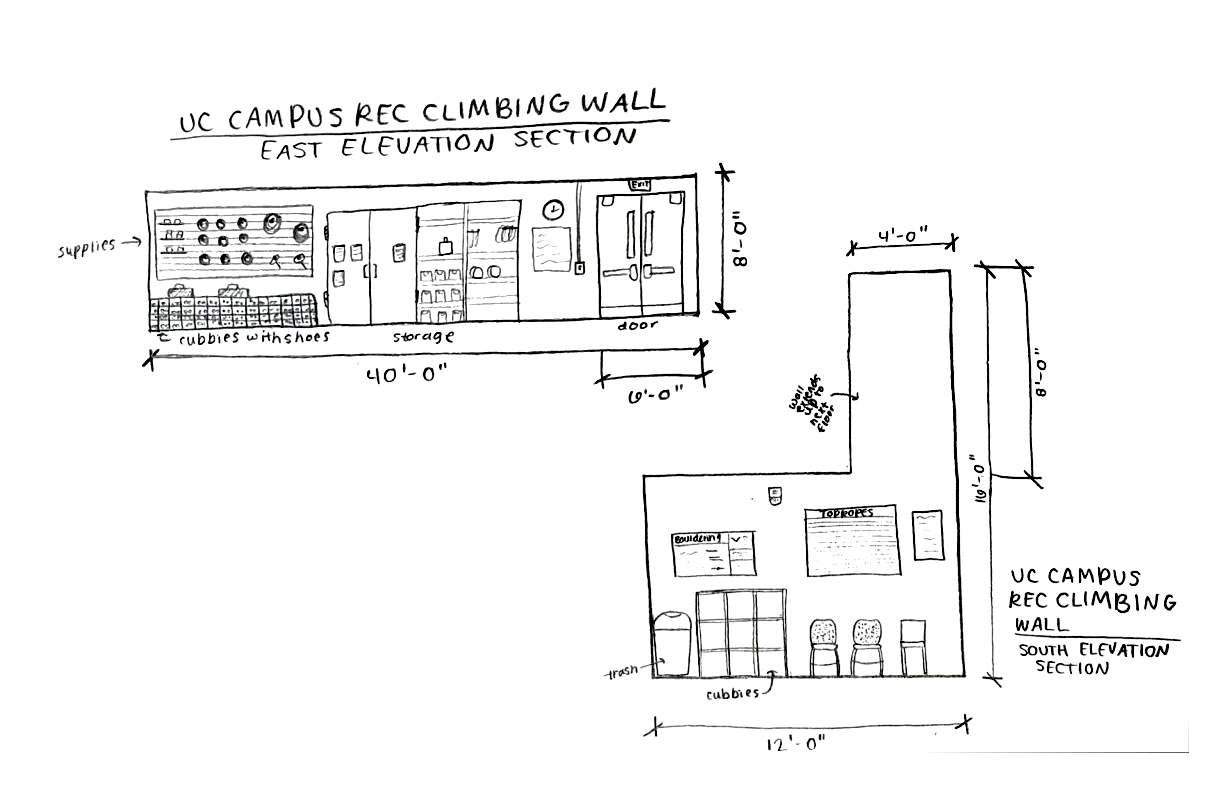 UC CAMPUS REC CLIMBING WALL
EAST ELEVATION SECTION
EXIT
supplies
8'-0"
cubbies with shoes
storage
door
40'-0"
6'-0"
4'-0"
wall
extends
up to
next
floor
8'-0"
16'-0"
TOPROPES
Bouldering
trash
cubbies
12'-0"
UC CAMPUS
REC CLIMBING
WALL
SOUTH ELEVATION
SECTION